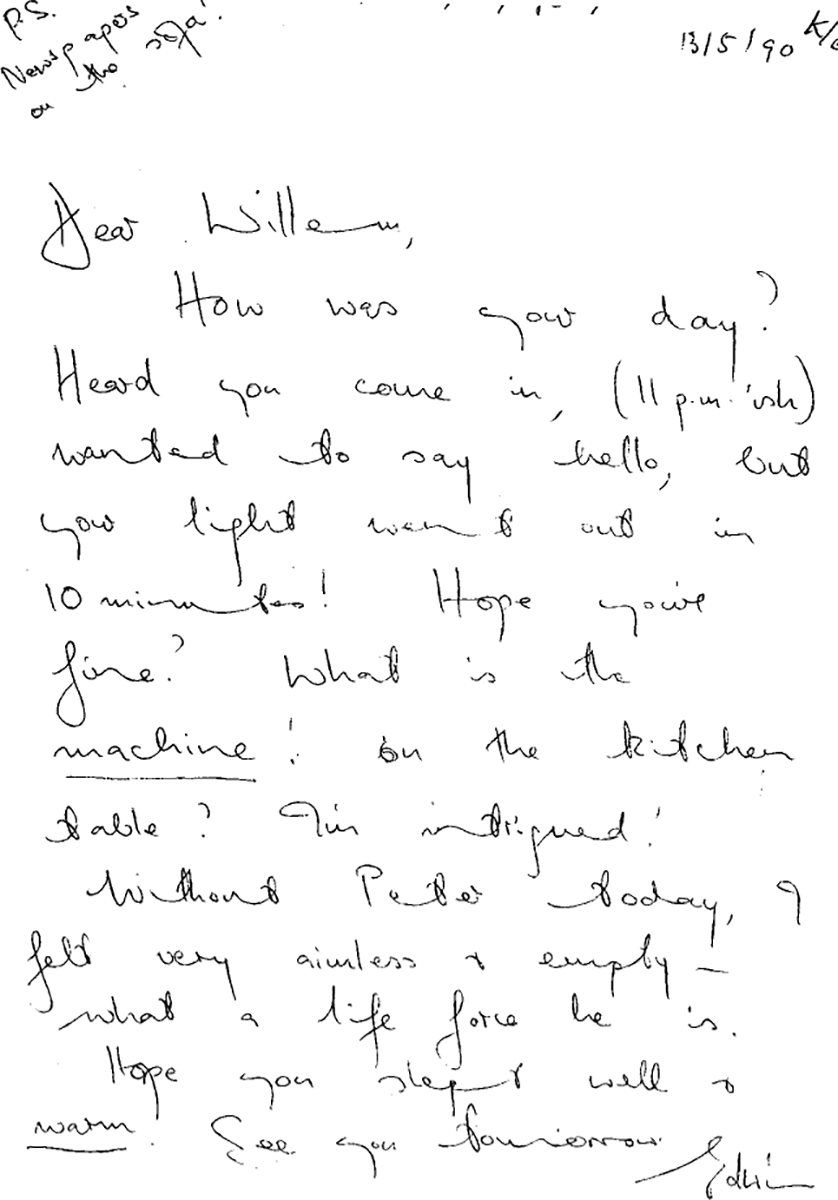 P.S.
Newspapers
on the sofa!
13/5/90
Dear Willem,
How was your day?
Heard you come in, (11 p.m.'ish)
wanted to say hello, but
your light went out in
10 minutes! Hope you're
fine? What is the
machine! on the kitchen
table? I'm intrigued!
Without Peter today, I
felt very aimless & empty –
what a life force he is.
Hope you slept well &
warm! See you tomorrow
Edwin